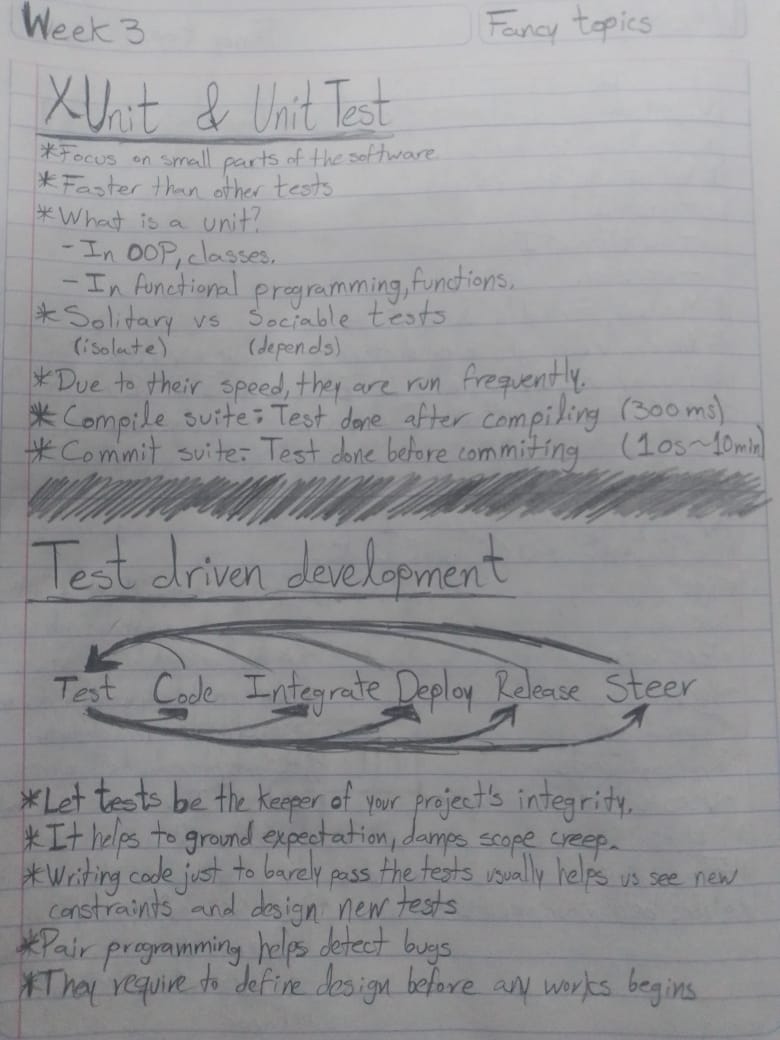 Week 3
Fancy topics
XUnit & Unit Test
*Focus on small parts of the software
*Faster than other tests
*What is a unit?
-In OOP, classes.
-In functional programming, functions.
*Solitary vs Sociable tests
(isolate) (depends)
*Due to their speed, they are run frequently.
*Compile suite: Test done after compiling (300ms)
*Commit suite: Test done before commiting (10s~10min)
Test driven development
Test Code Integrate Deploy Release Steer
*Let tests be the keeper of your project's integrity.
*It helps to ground expectation, damps scope creep.
*Writing code just to barely pass the tests usually helps us see new
constraints and design new tests
*Pair programming helps detect bugs
*They require to define design before any works begins